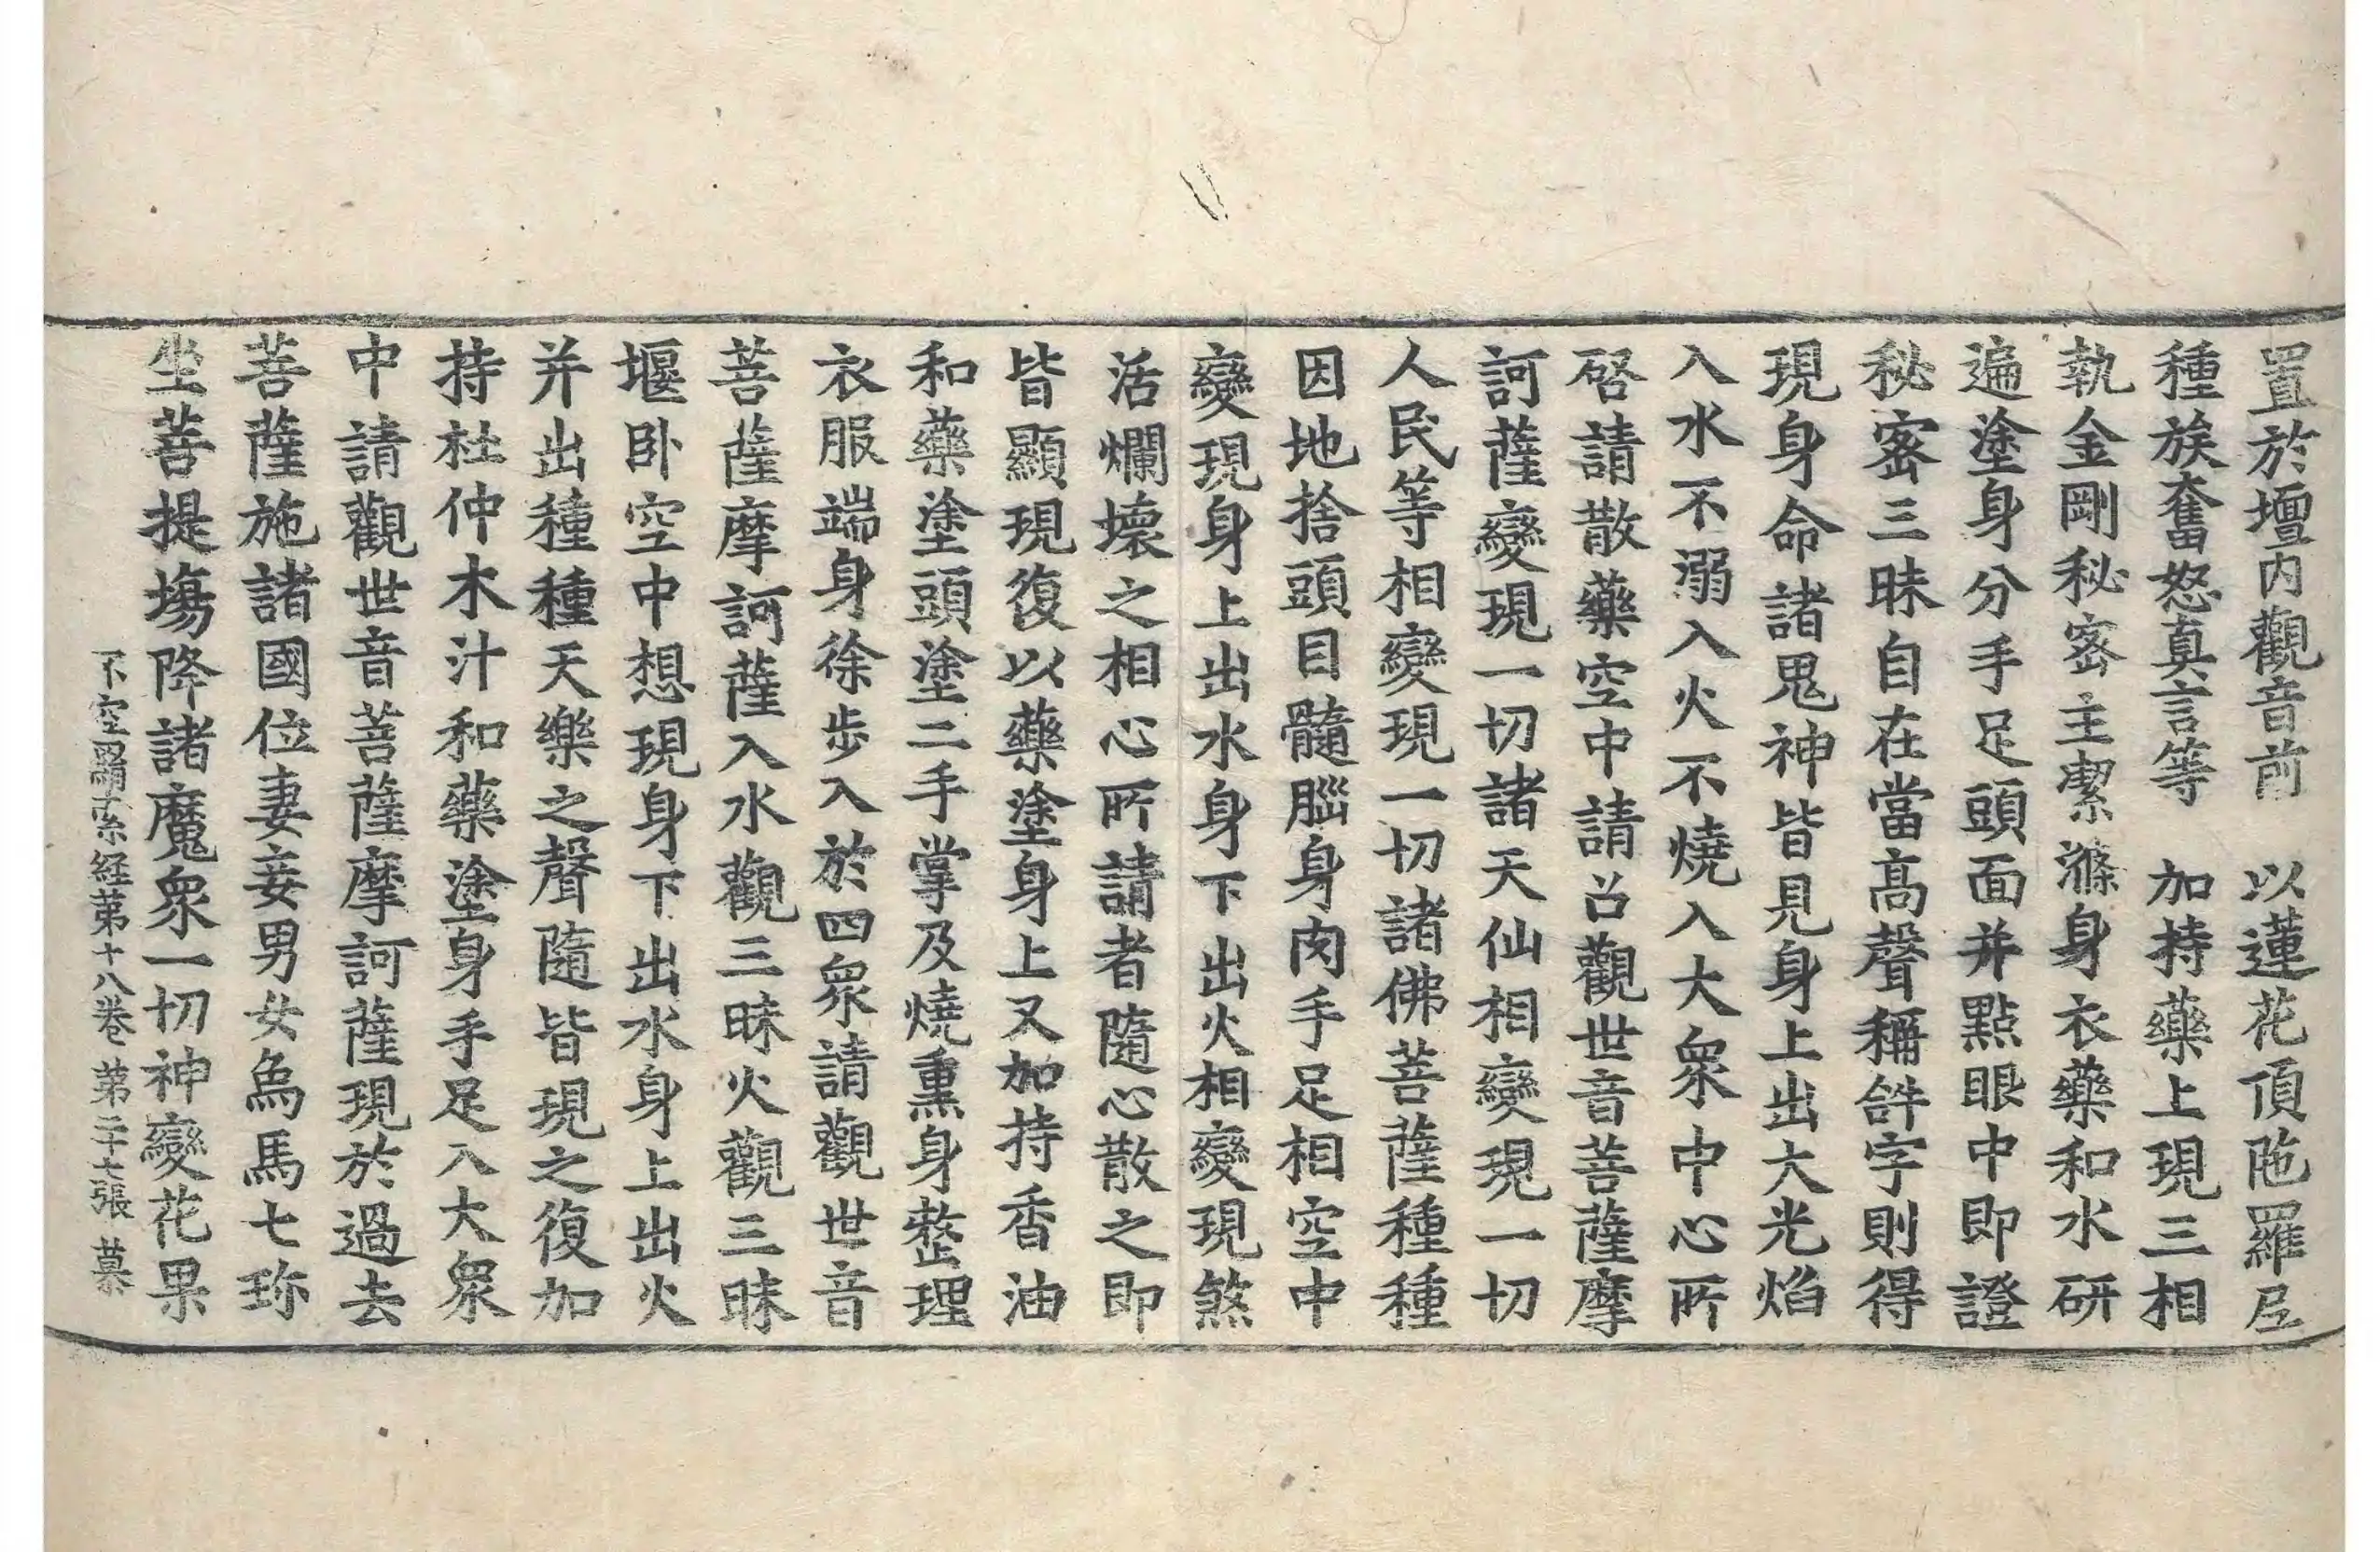 置於壇内觀音前　以蓮花頂陁羅尼
種族奮怒真言等　加持藥上現三相
執金剛秘密主潔滌身衣藥和水研
遍塗身分手足頭面并點眼中即證
秘密三昧自在當高聲稱𤙖字則得
現身命諸鬼神皆見身上出大光焰
入水不溺入火不燒入大衆中心所
啓請散藥空中請召觀世音菩薩摩
訶薩變現一切諸天仙相變現一切
人民等相變現一切諸佛菩薩種種
因地捨頭目髓腦身肉手足相空中
變現身上出水身下出火相變現煞
活爛壞之相心所請者隨心散之即
皆顯現復以藥塗身上又加持香油
和藥塗頭塗二手掌及燒熏身整理
衣服端身徐步入於四衆請觀世音
菩薩摩訶薩入水觀三昧火觀三昧
堰卧空中想現身下出水身上出火
并出種種天樂之聲隨皆現之復加
持杜仲木汁和藥塗身手足入大衆
中請觀世音菩薩摩訶薩現於過去
菩薩施諸國位妻妾男女烏馬七珎
坐菩提場降諸魔衆一切神變花果
不空羂索経第十八巻　第二十七張　慕